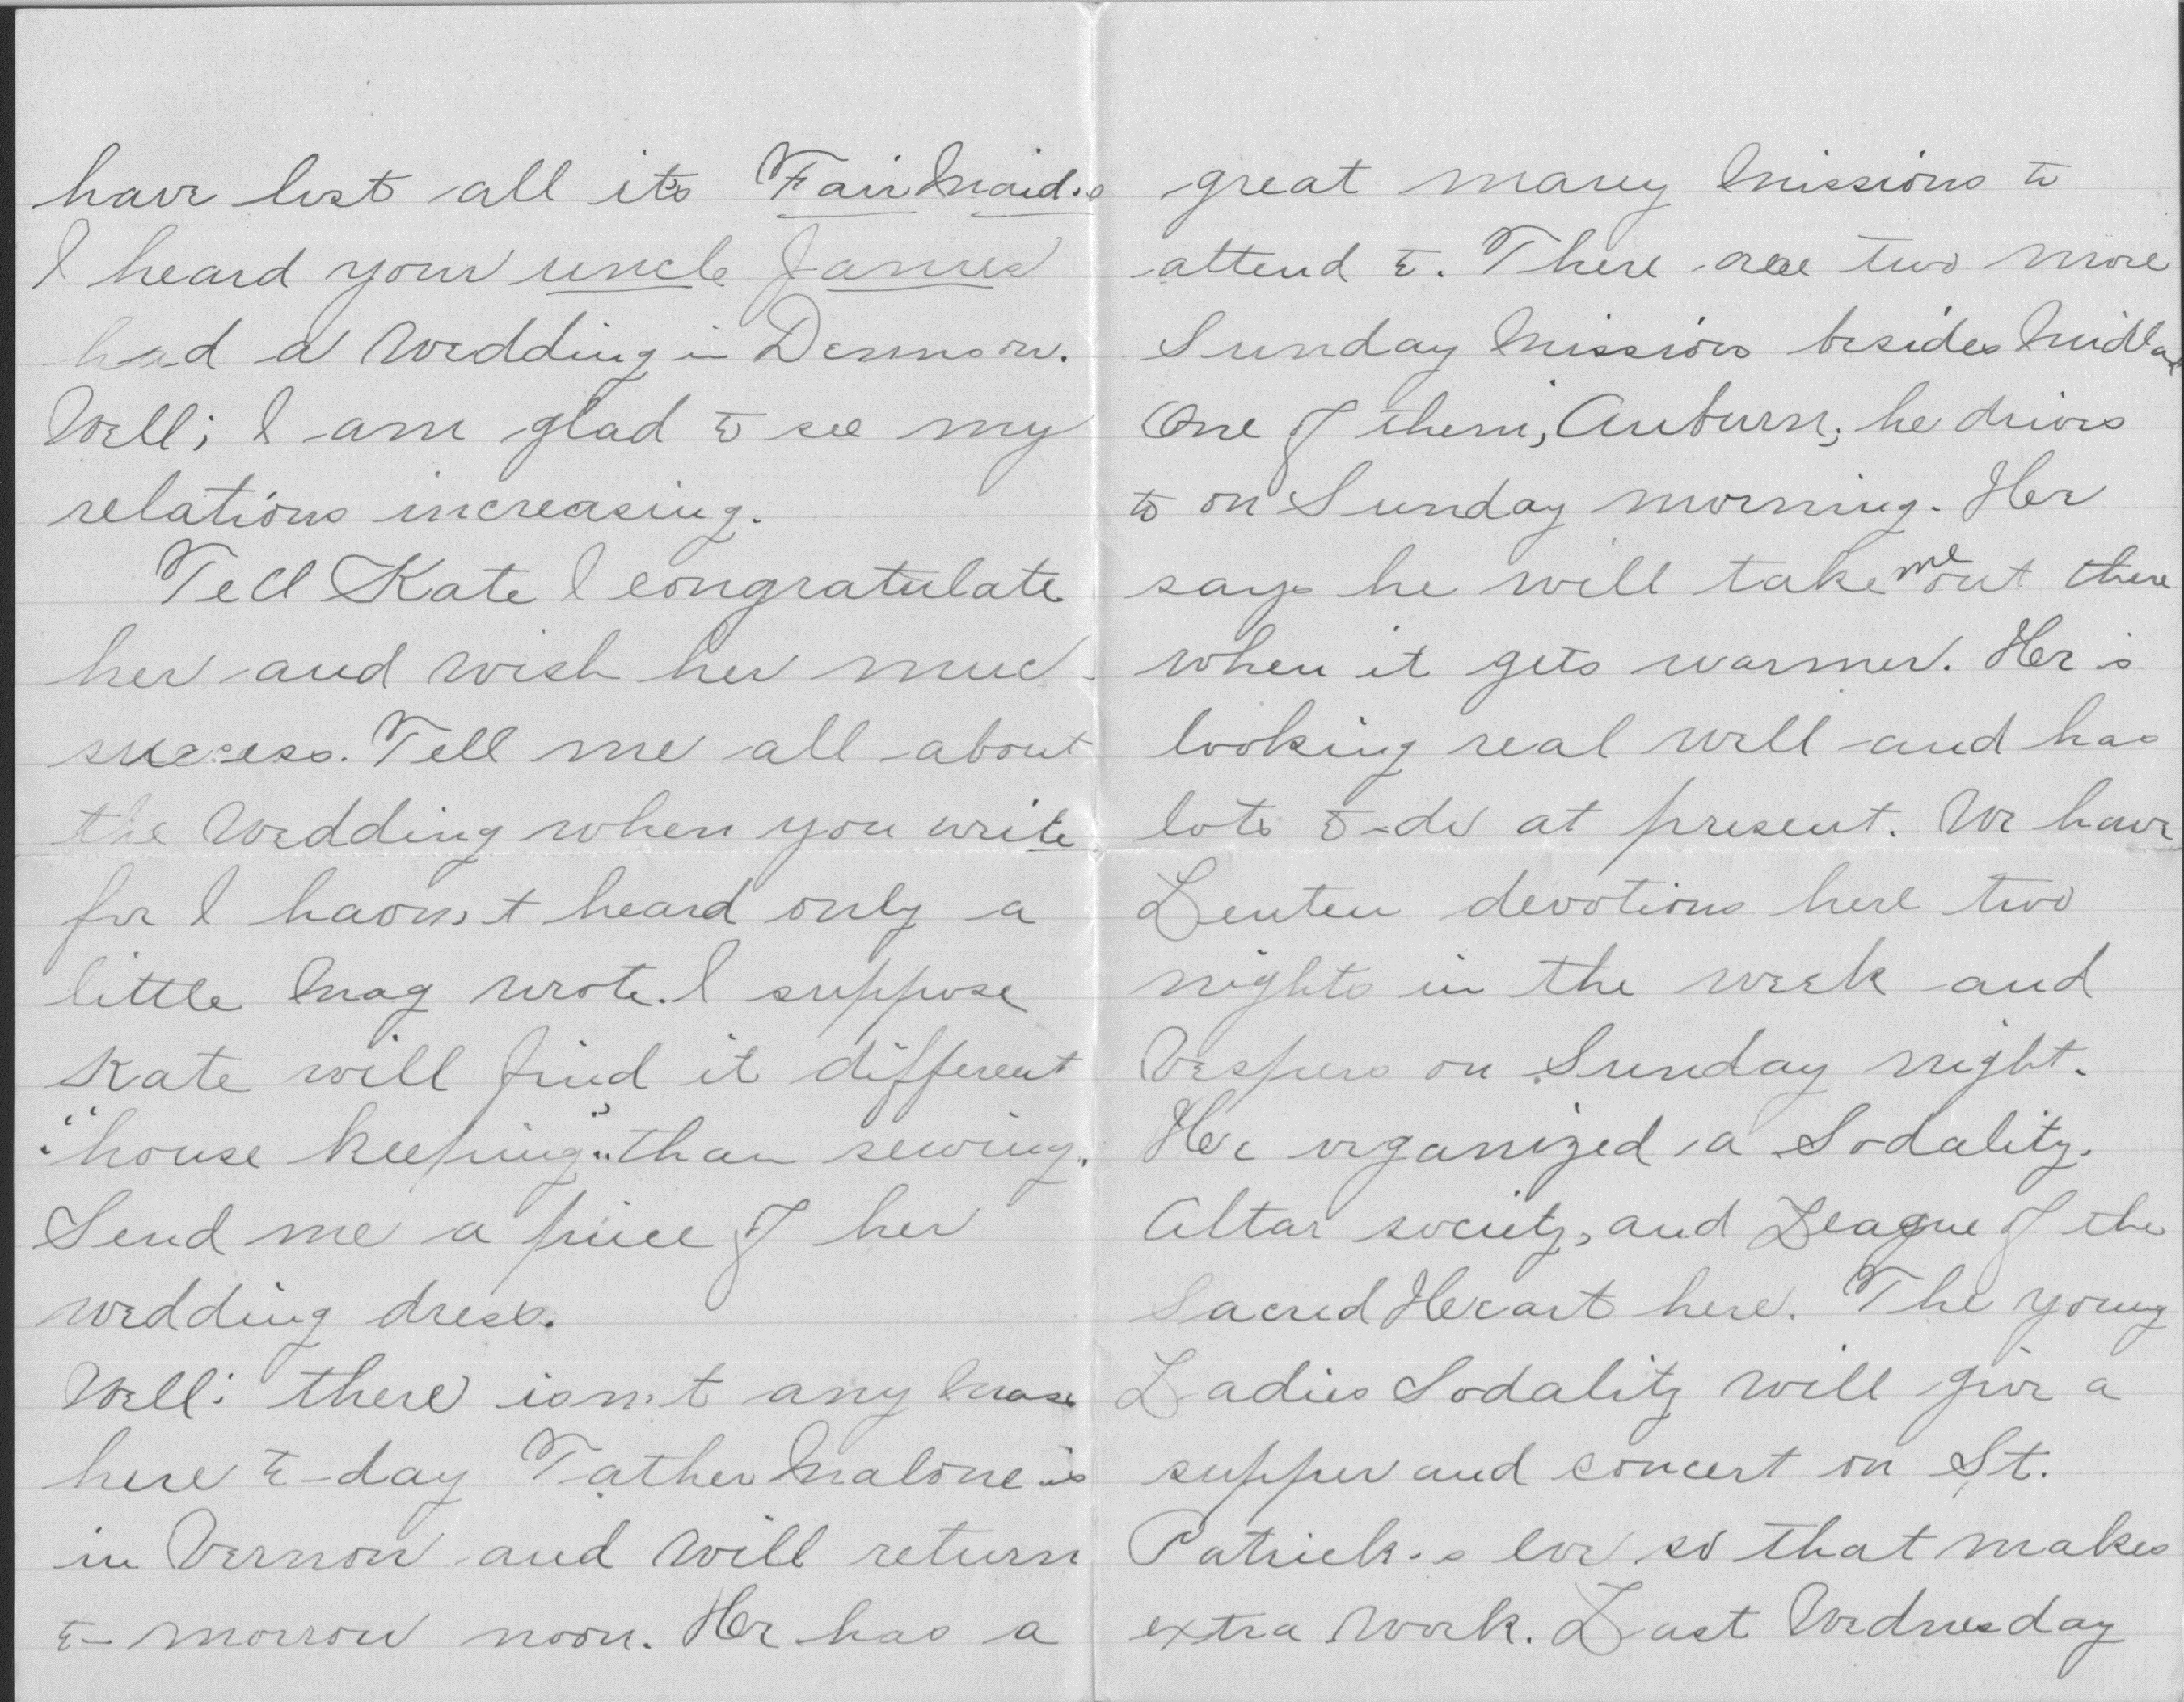 have lost all its Fair Maids
I heard your uncle James
had a Wedding in Dennison.
Well; I am glad to see my
relations increasing.
Tell Kate I congratulate
her and wish her muc
success. Tell me all about
the Wedding when you write
for I haven't heard only a
little Mag wrote. I suppose
Kate will find it different
"house keeping" than sewing.
Send me a piece of her
wedding dress.
Well: there isn't any Mass
here to-day Father Malone is
in Vernon and will return
to-morrow noon. He has a
great many Missions to
attend to. There are two more
Sunday Missions besides
One of them, Auburn, he drives
to on Sunday morning. He
says he will take me out there
when it gets warmer. He is
looking real well and has
lots to-do at present. We have
Lenten devotions here two
nights in the week and
Vespers on Sunday night.
He organized a Sodality.
Altar society, and League of the
Sacred Heart here. The young
Ladies Sodality will give a
supper and concert on St.
Patrick's eve so that makes
extra work. Last Wednesday